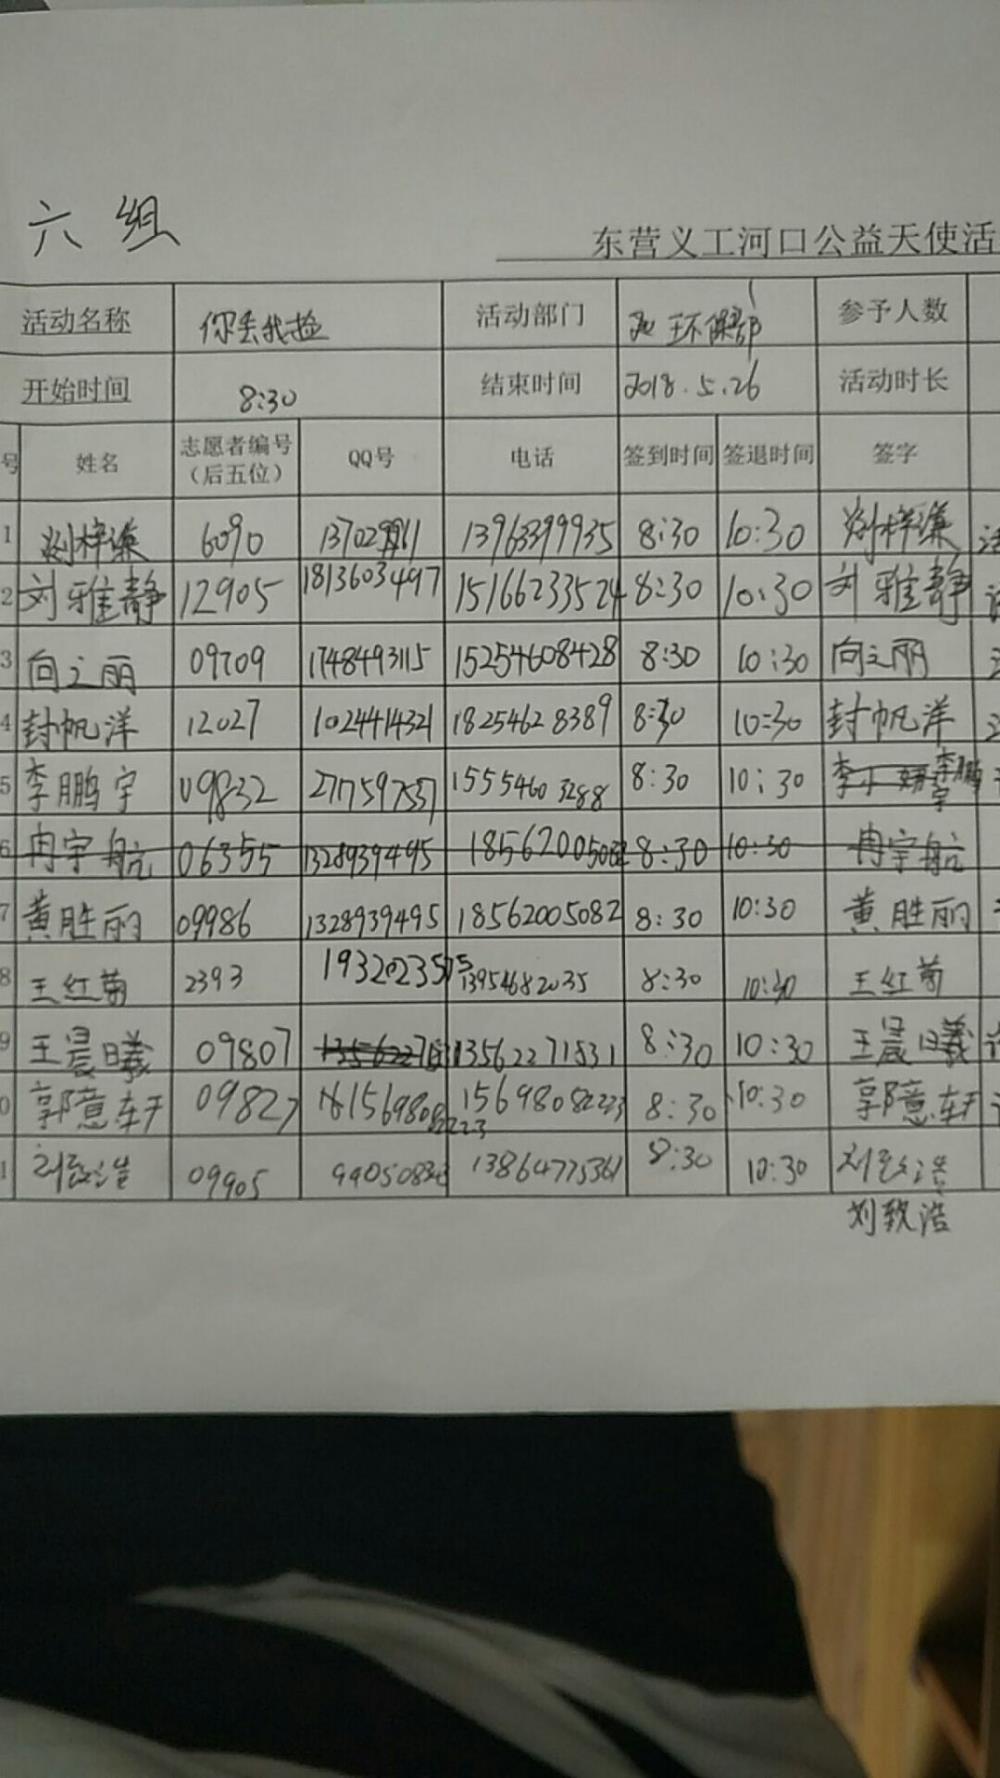 六组
东营义工河口公益天使活
活动名称 你丢我捡 活动部门 环保部 参予人数
开始时间 8:30 结束时间 2018.5.26 活动时长
号 姓名 志愿者编号 QQ号 电话 签到时间 签退时间 签字
（后五位）
1 刘梓谦 6090 13963399935 8:30 10:30 刘梓谦
2 刘雅静 12905 1813603497 15166233524 8:30 10:30 刘雅静
3 向之丽 09709 1748493115 15254608428 8:30 10:30 向之丽
4 封帆洋 12027 1024414321 18254628389 8:30 10:30 封帆洋
5 李鹏宇 09832 2717597537 15554603288 8:30 10:30 李鹏宇
6 冉宇航 06355 1328939495 18562005082 8:30 10:30 冉宇航
7 黄胜丽 09986 1328939495 18562005082 8:30 10:30 黄胜丽
8 王红菊 2393 1932023575 13954682035 8:30 10:30 王红菊
9 王晨曦 09807 13562271831 8:30 10:30 王晨曦
0 郭意轩 09827 15698082223 8:30 10:30 郭意轩
1 刘致浩 09905 13864775361 8:30 10:30 刘致浩
刘致浩